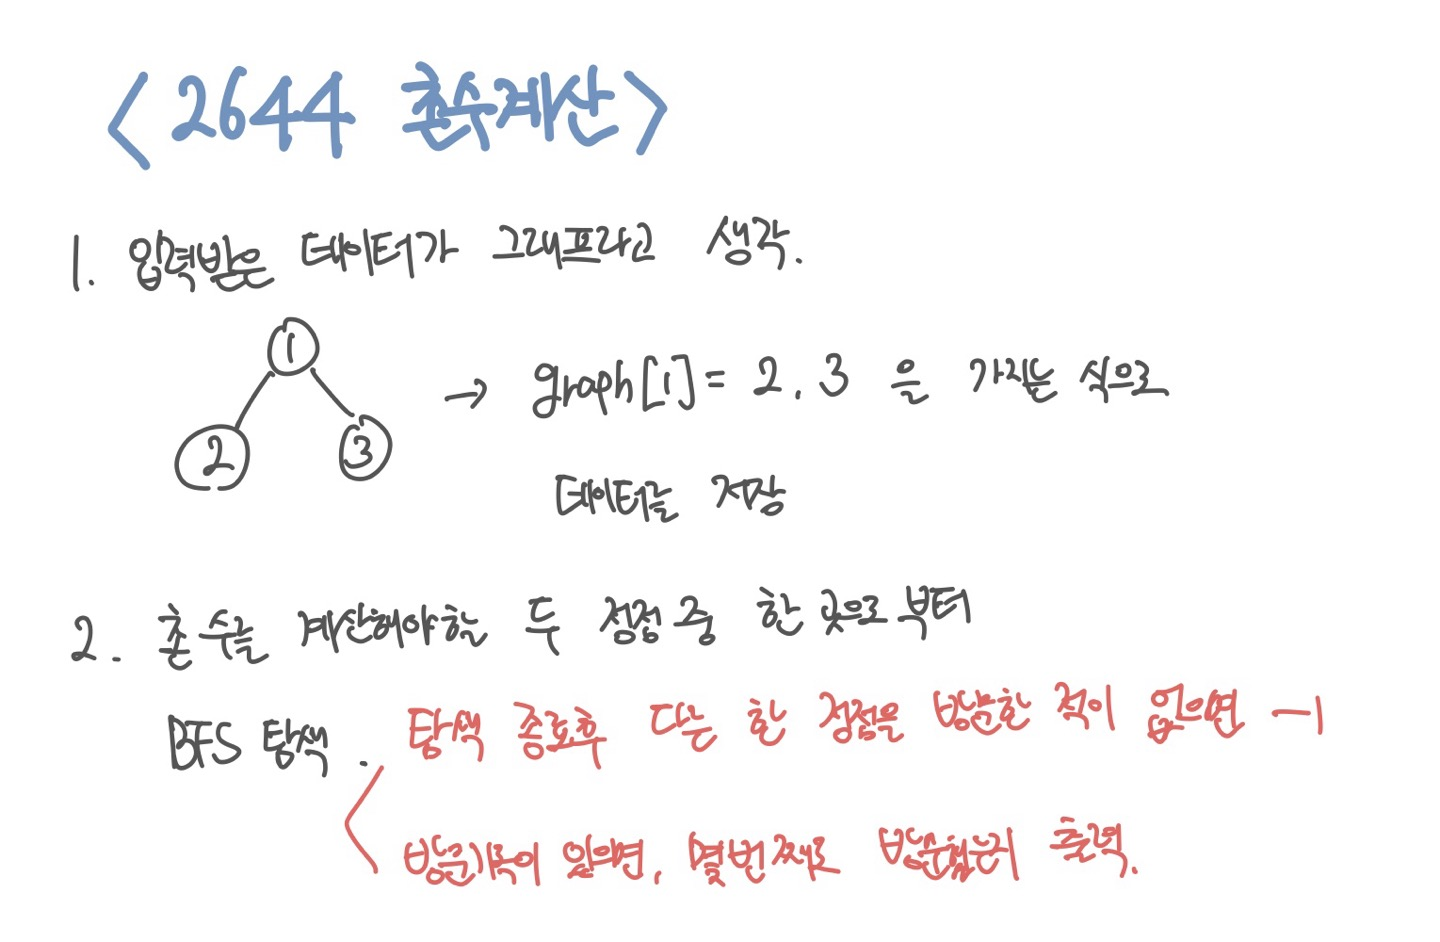 <2644 촌수계산>
1. 입력받은 데이터가 그래프라고 생각.
1
→ graph[1] = 2, 3 을 가지는 식으로
2 3
데이터를 저장
2. 촌수를 계산해야할 두 정점 중 한 곳으로 부터
BFS 탐색.
탐색 종료후 다른 한 정점을 방문한 적이 없으면 -1
방문기록이 있으면, 몇번째로 방문했는지 출력.